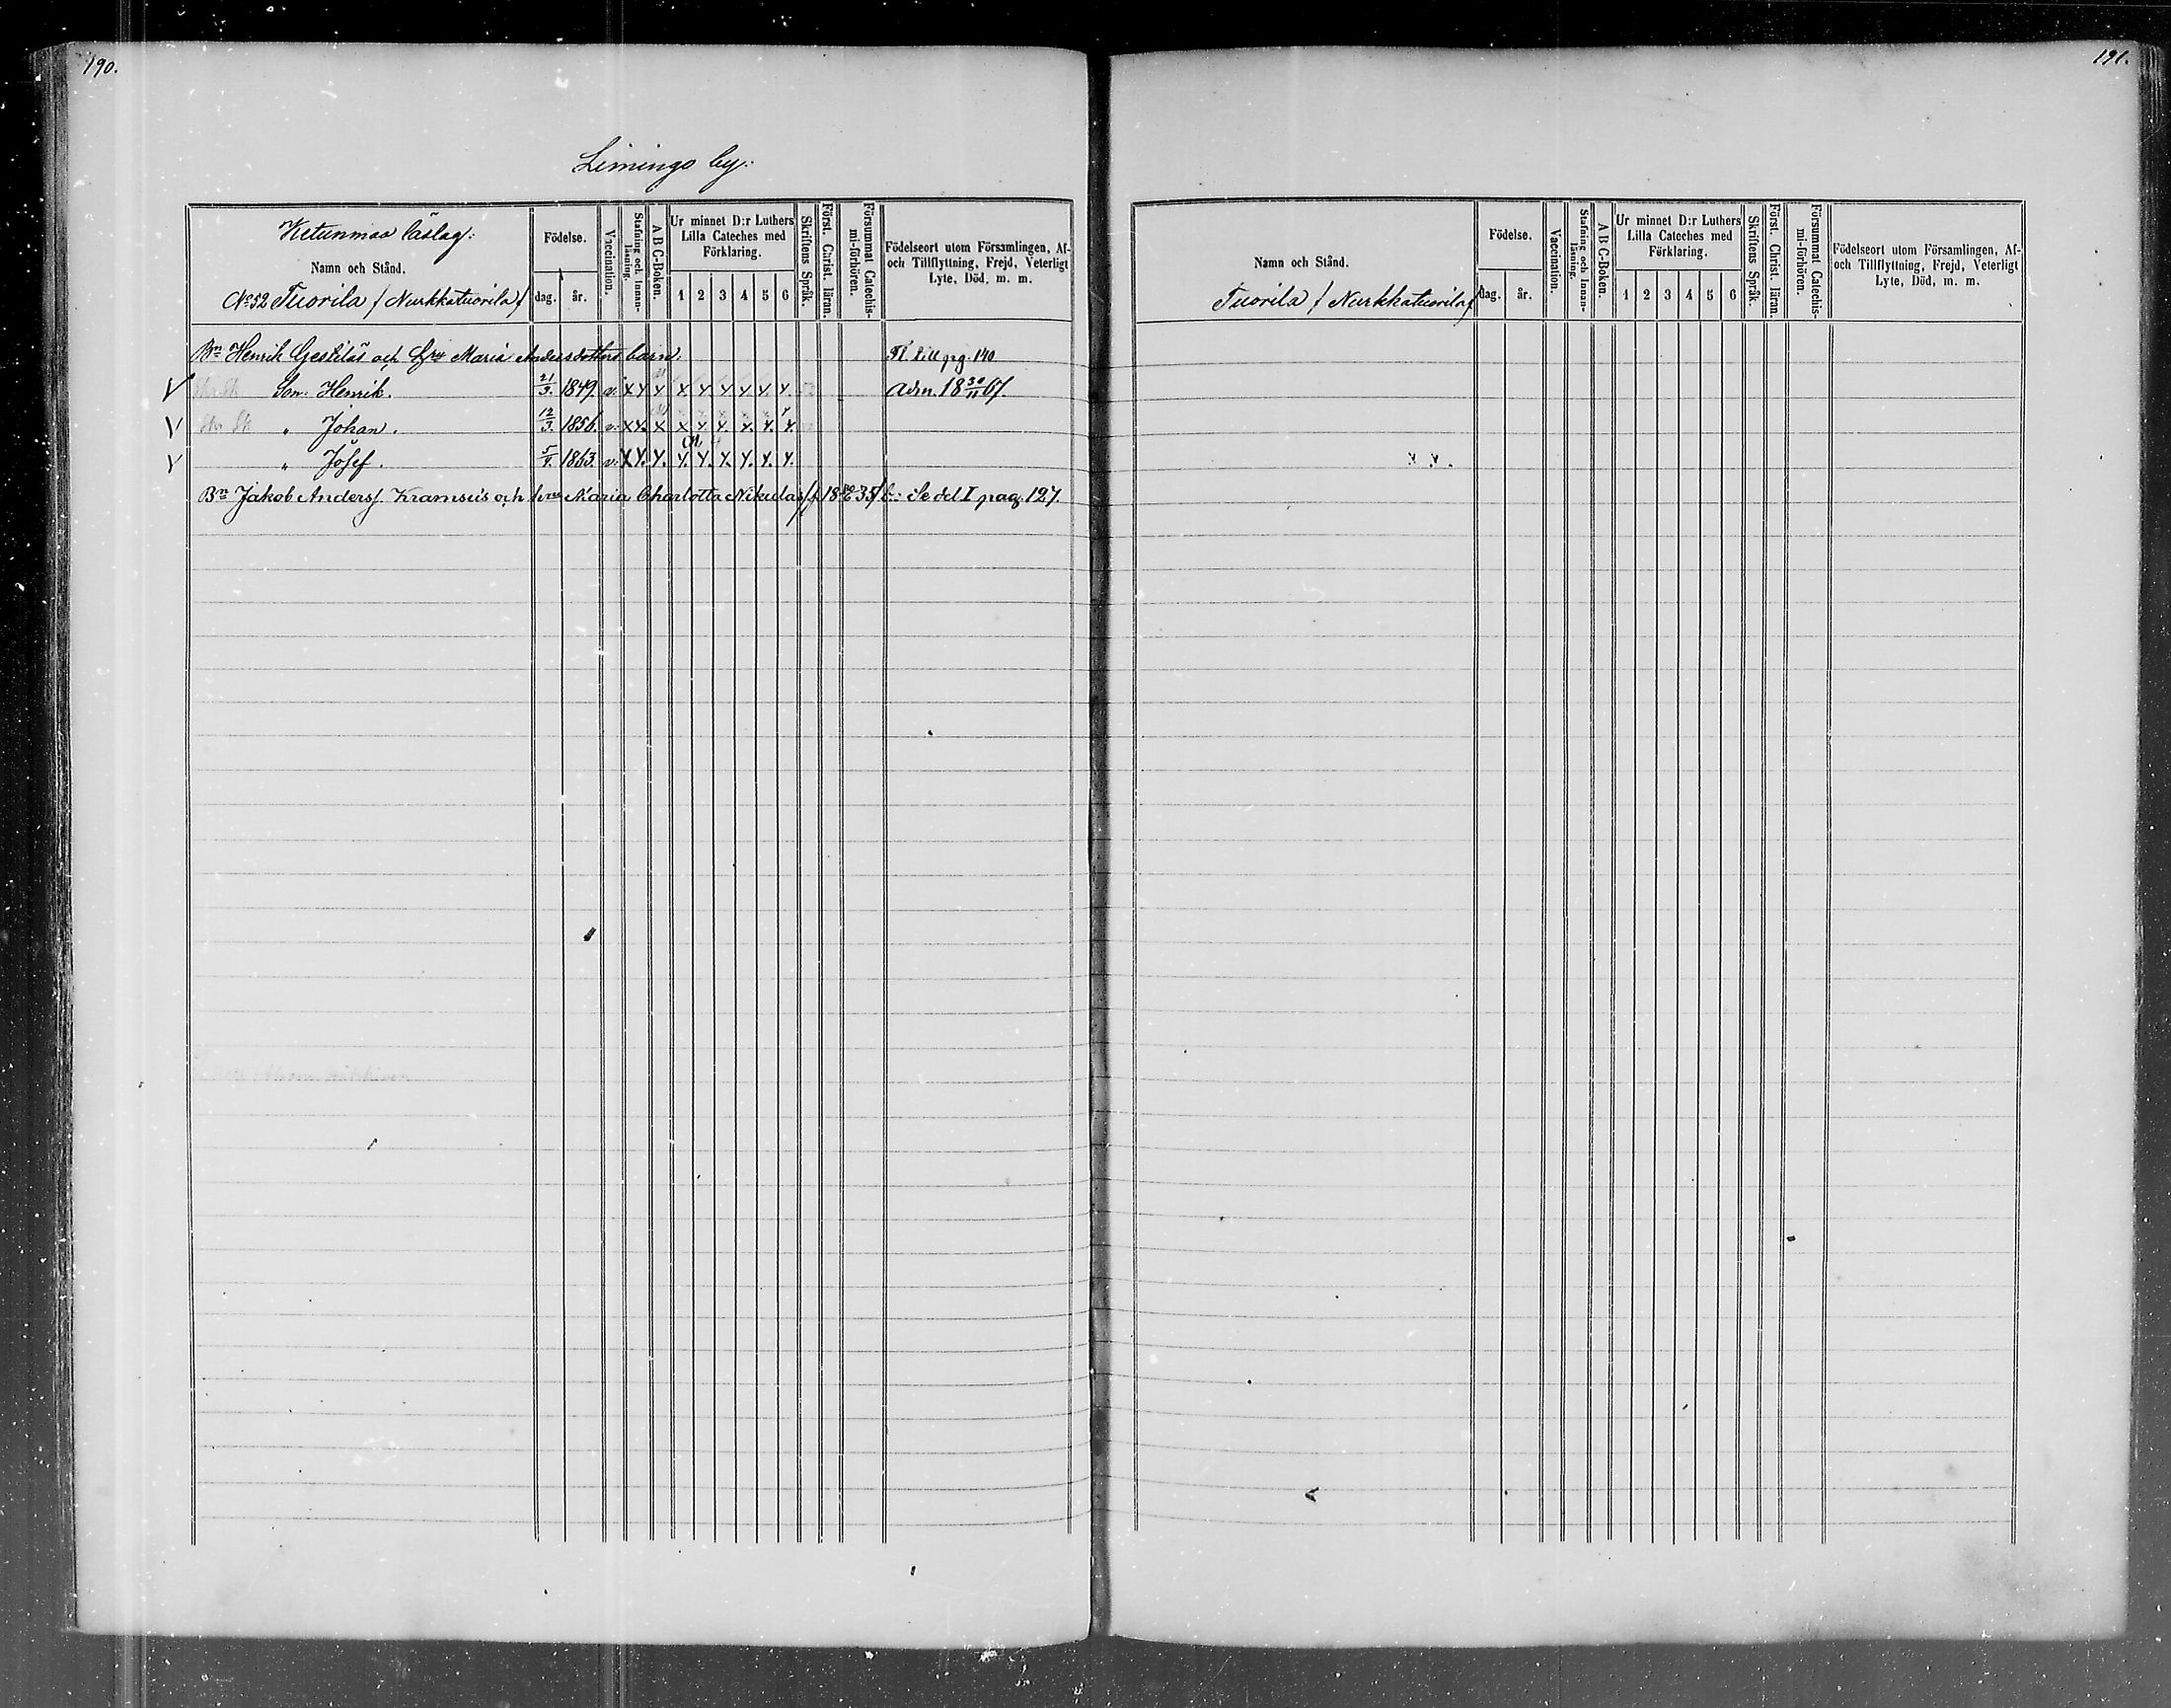 190.
Limingo by.
Ketunmaa läslag.
Namn och Stånd.
No 52 Tuorila / Nurkkatuorila /
Födelse.
dag. år.
Vaccination.
Stafning och Innan-läsning.
A B C-Boken.
Ur minnet D:r Luthers
Lilla Cateches med
Förklaring.
1 2 3 4 5 6
Skriftens Språk.
Först. Christ. läran.
Försummat Catechis-mi-förhören.
Födelseort utom Församlingen, Af-
och Tillflyttning, Frejd, Veterligt
Lyte, Död, m. m.
Bn Henrik Gestilös och hru Maria Andersdotters barn. Fl. till pg. 140
Son. Henrik. 21/3. 1849. v. Adm. 18 30/11 67.
" Johan. 12/3. 1856. v.
" Josef. 1863. v.
Bn Jakob Anders. Kramsuis och hru Maria Charlotta Nikulas 18 35 b: Se del I pag. 127.
191.
Namn och Stånd.
Tuorila / Nurkkatuorila /
Födelse.
dag. år.
Vaccination.
Stafning och Innan-läsning.
A B C-Boken.
Ur minnet D:r Luthers
Lilla Cateches med
Förklaring.
1 2 3 4 5 6
Skriftens Språk.
Först. Christ. läran.
Försummat Catechis-mi-förhören.
Födelseort utom Församlingen, Af-
och Tillflyttning, Frejd, Veterligt
Lyte, Död, m. m.